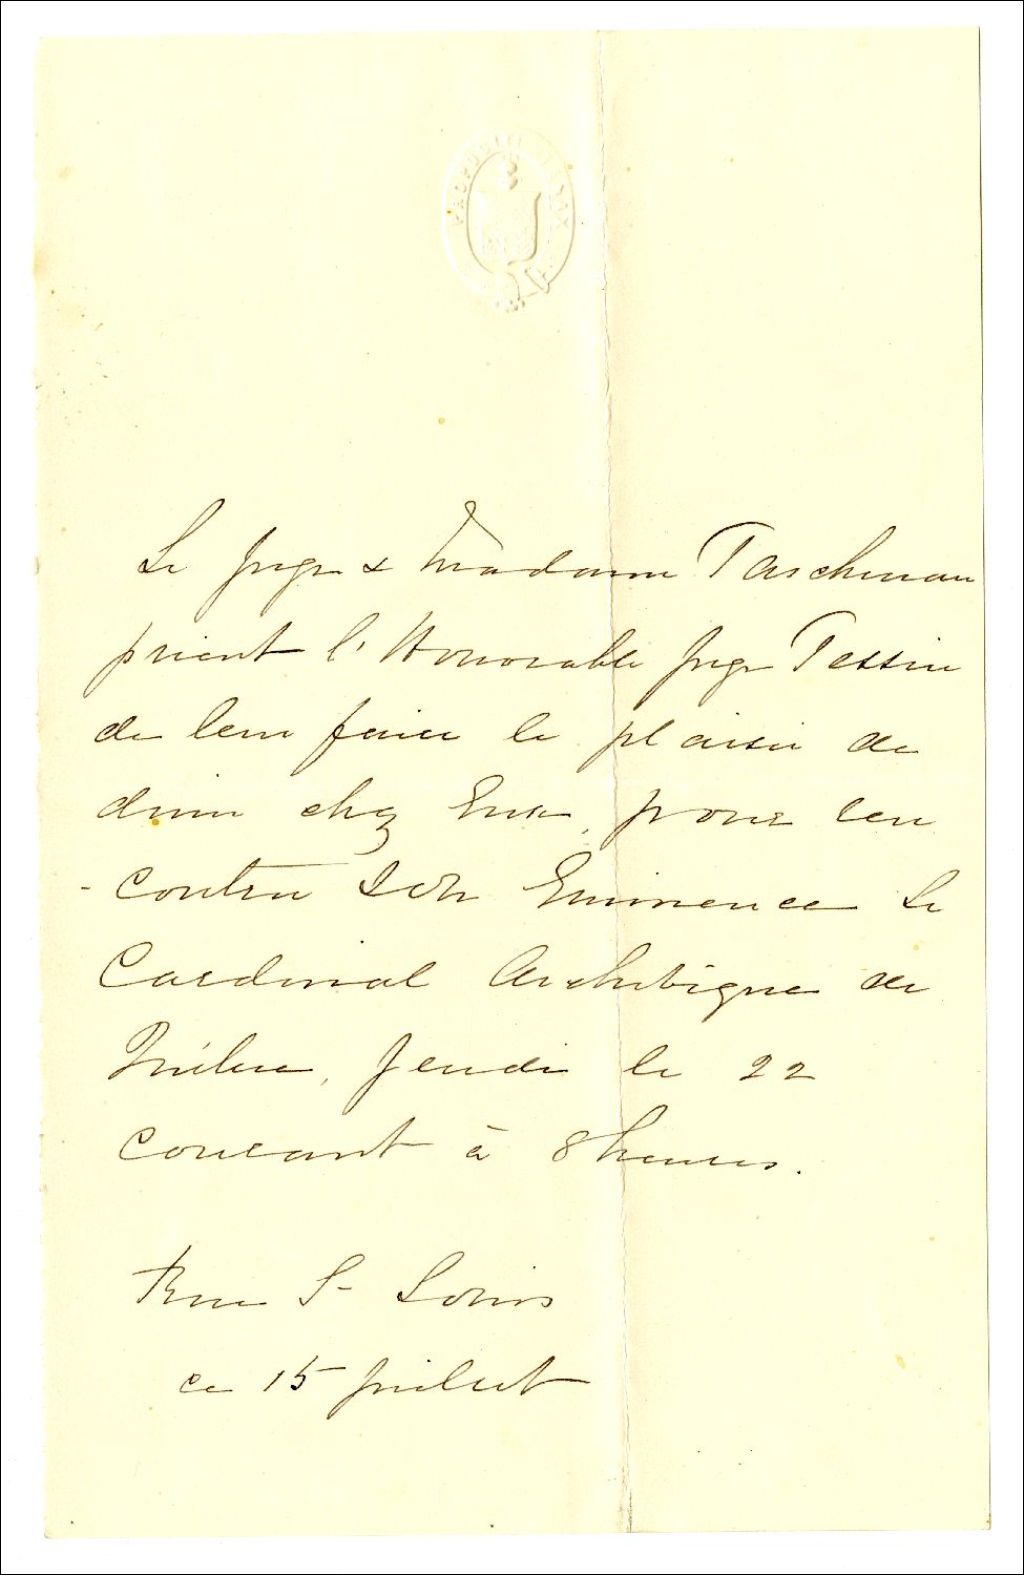 Le Juge & Madame Taschereau
prient l'Honorable Juge Tessier
de leur faire le plaisir de
diner chez Eux, pour ren
- contrer Son Eminence Le
Cardinal Archevêque de
Québec, Jeudi le 22
courant à 8 heures.
Rue St Louis
ce 15 Juillet